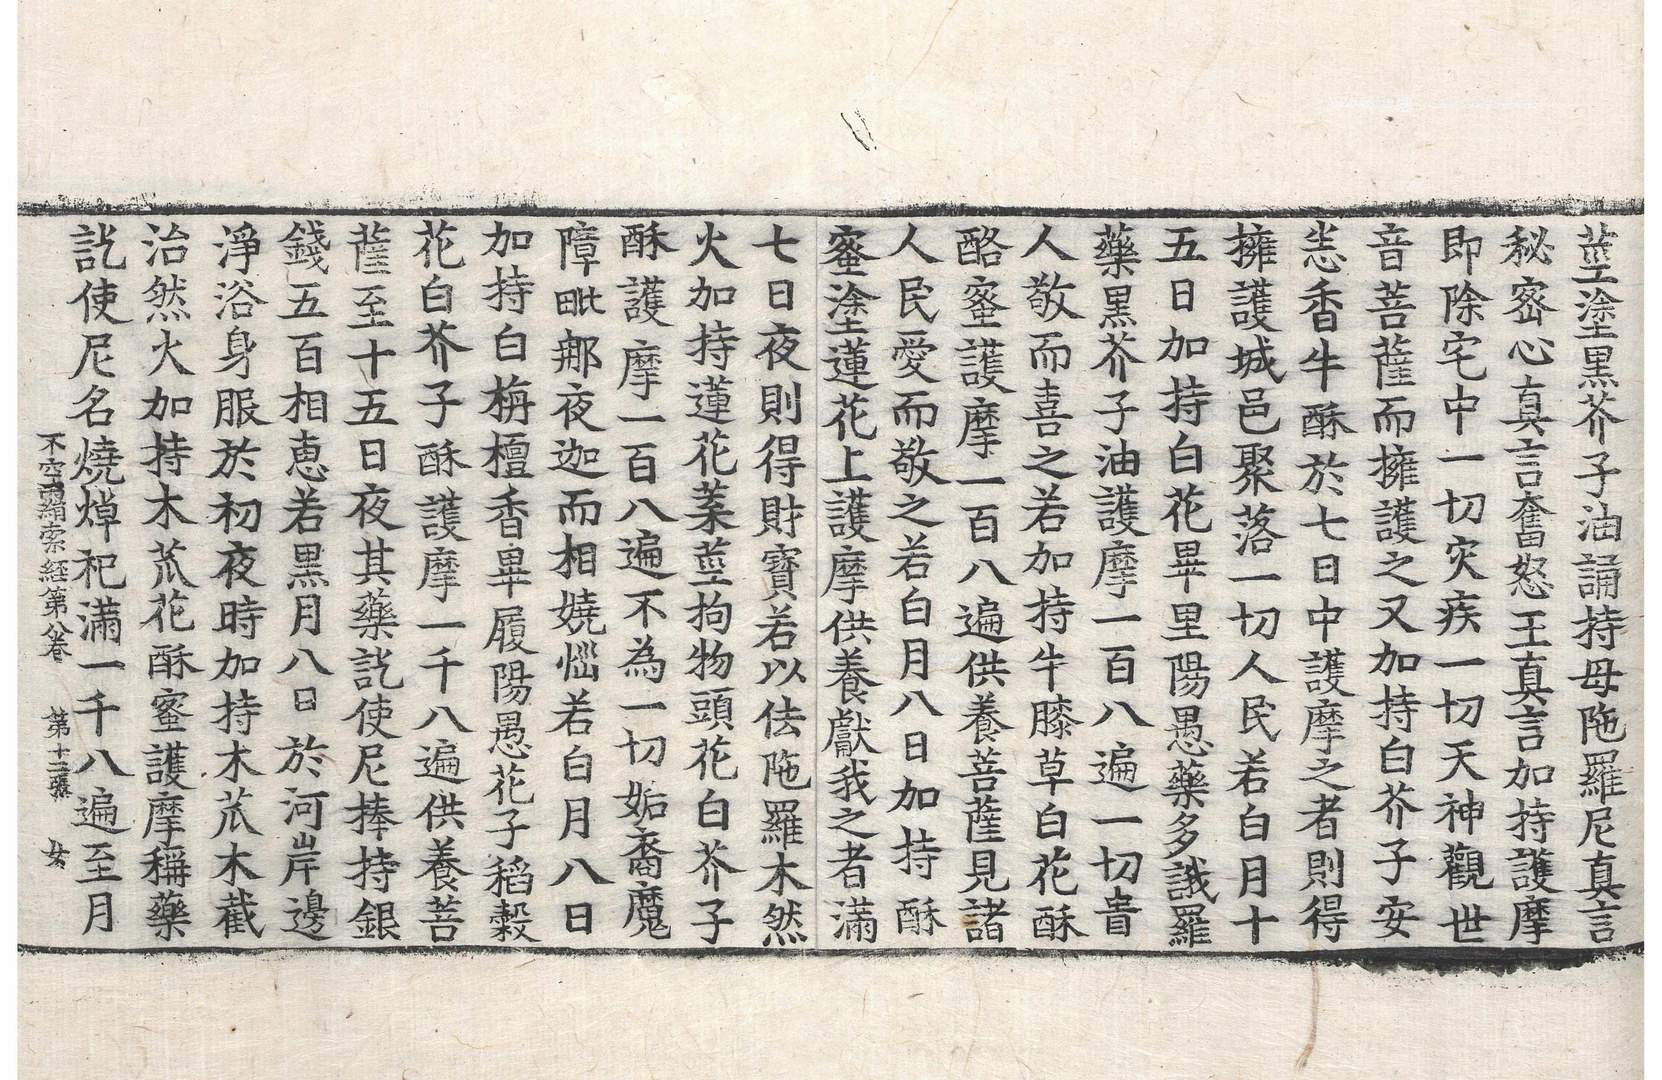 莖塗黑芥子油誦持母陁羅尼真言
秘密心真言奮怒王真言加持護摩
即除宅中一切灾疾一切天神觀世
音菩薩而擁護之又加持白芥子安
悉香牛酥於七日中護摩之者則得
擁護城邑聚落一切人民若白月十
五日加持白花畢里陽愚藥多誐羅
藥黑芥子油護摩一百八遍一切貴
人敬而喜之若加持牛膝草白花酥
酪蜜護摩一百八遍供養菩薩見諸
人民愛而敬之若白月八日加持酥
蜜塗蓮花上護摩供養獻我之者滿
七日夜則得財寶若以佉陁羅木然
火加持蓮花葉莖拘物頭花白芥子
酥護摩一百八遍不為一切姤裔魔
障毗郍夜迦而相嬈惱若白月八日
加持白栴檀香畢履陽愚花子稻穀
花白芥子酥護摩一千八遍供養菩
薩至十五日夜其藥訖使尼捧持銀
錢五百相恵若黑月八日於河岸邊
淨浴身服於初夜時加持木苽木截
治然火加持木苽花酥蜜護摩稱藥
訖使尼名燒焯祀滿一千八遍至月
不空羂索経第八卷 第十二張 女